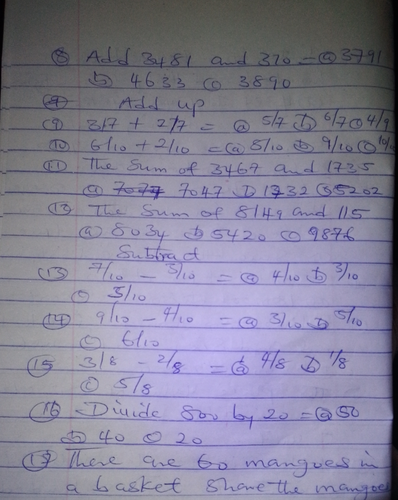 (8) Add 3481 and 310 = (a) 3791
(b) 4633 (c) 3890
Add up
(9) 3/7 + 2/7 = (a) 5/7 (b) 6/7 (c) 4/9
(10) 6/10 + 2/10 = (a) 8/10 (b) 9/10 (c)
(11) The Sum of 3467 and 1735
(a) 7047 (b) 1732 (c) 5202
The Sum of 8149 and 115
(a) 8034 (b) 5420 (c) 9876
Subtract
(13) 7/10 - 3/10 = (a) 4/10 (b) 3/10
(c) 5/10
(14) 9/10 - 4/10 = (a) 3/10 (b) 5/10
(c) 6/10
(15) 3/8 - 2/8 = (a) 4/8 (b) 1/8
(c) 5/8
(16) Divide 800 by 20 = (a) 50
(b) 40 (c) 20
There are 60 mangoes in
a basket share the mangoes